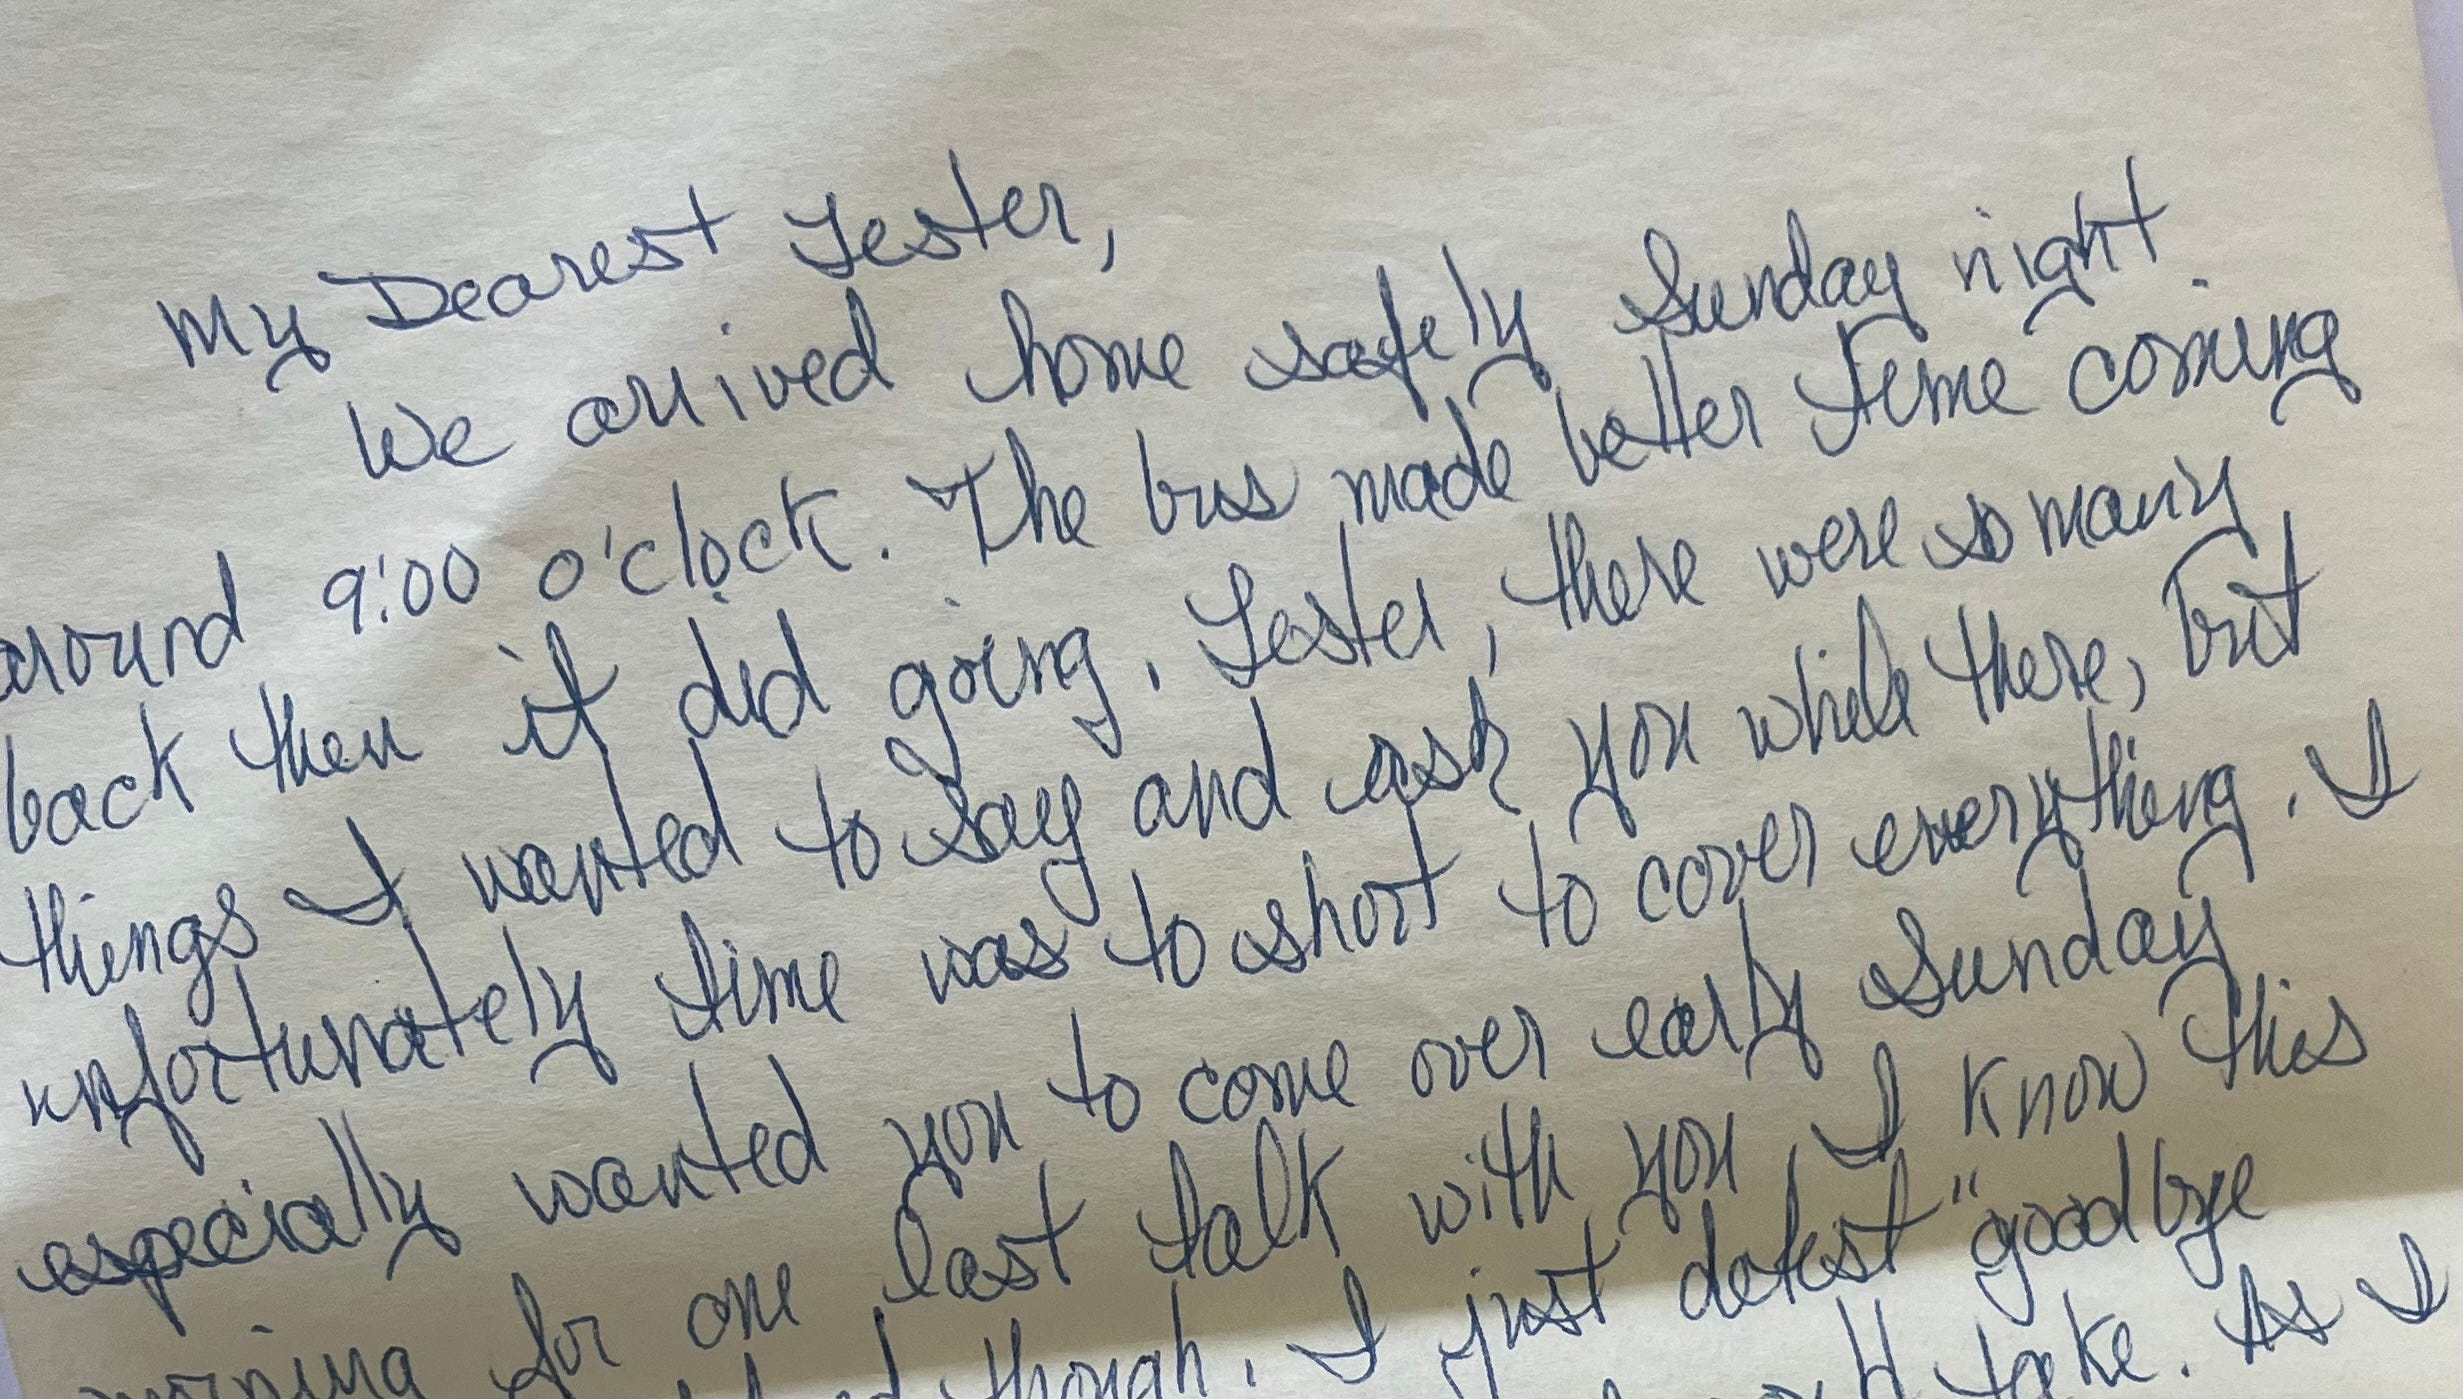 My Dearest Lester,
We arrived home safely Sunday night
around 9:00 o'clock. The bus made better time coming
back then it did going. Lester, there were so many
things I wanted to say and ask you while there, but
unfortunately time was to short to cover everything. I
especially wanted you to come over early Sunday
morning for one last talk with you, I know this
though. I just detest "goodbye
take. As I